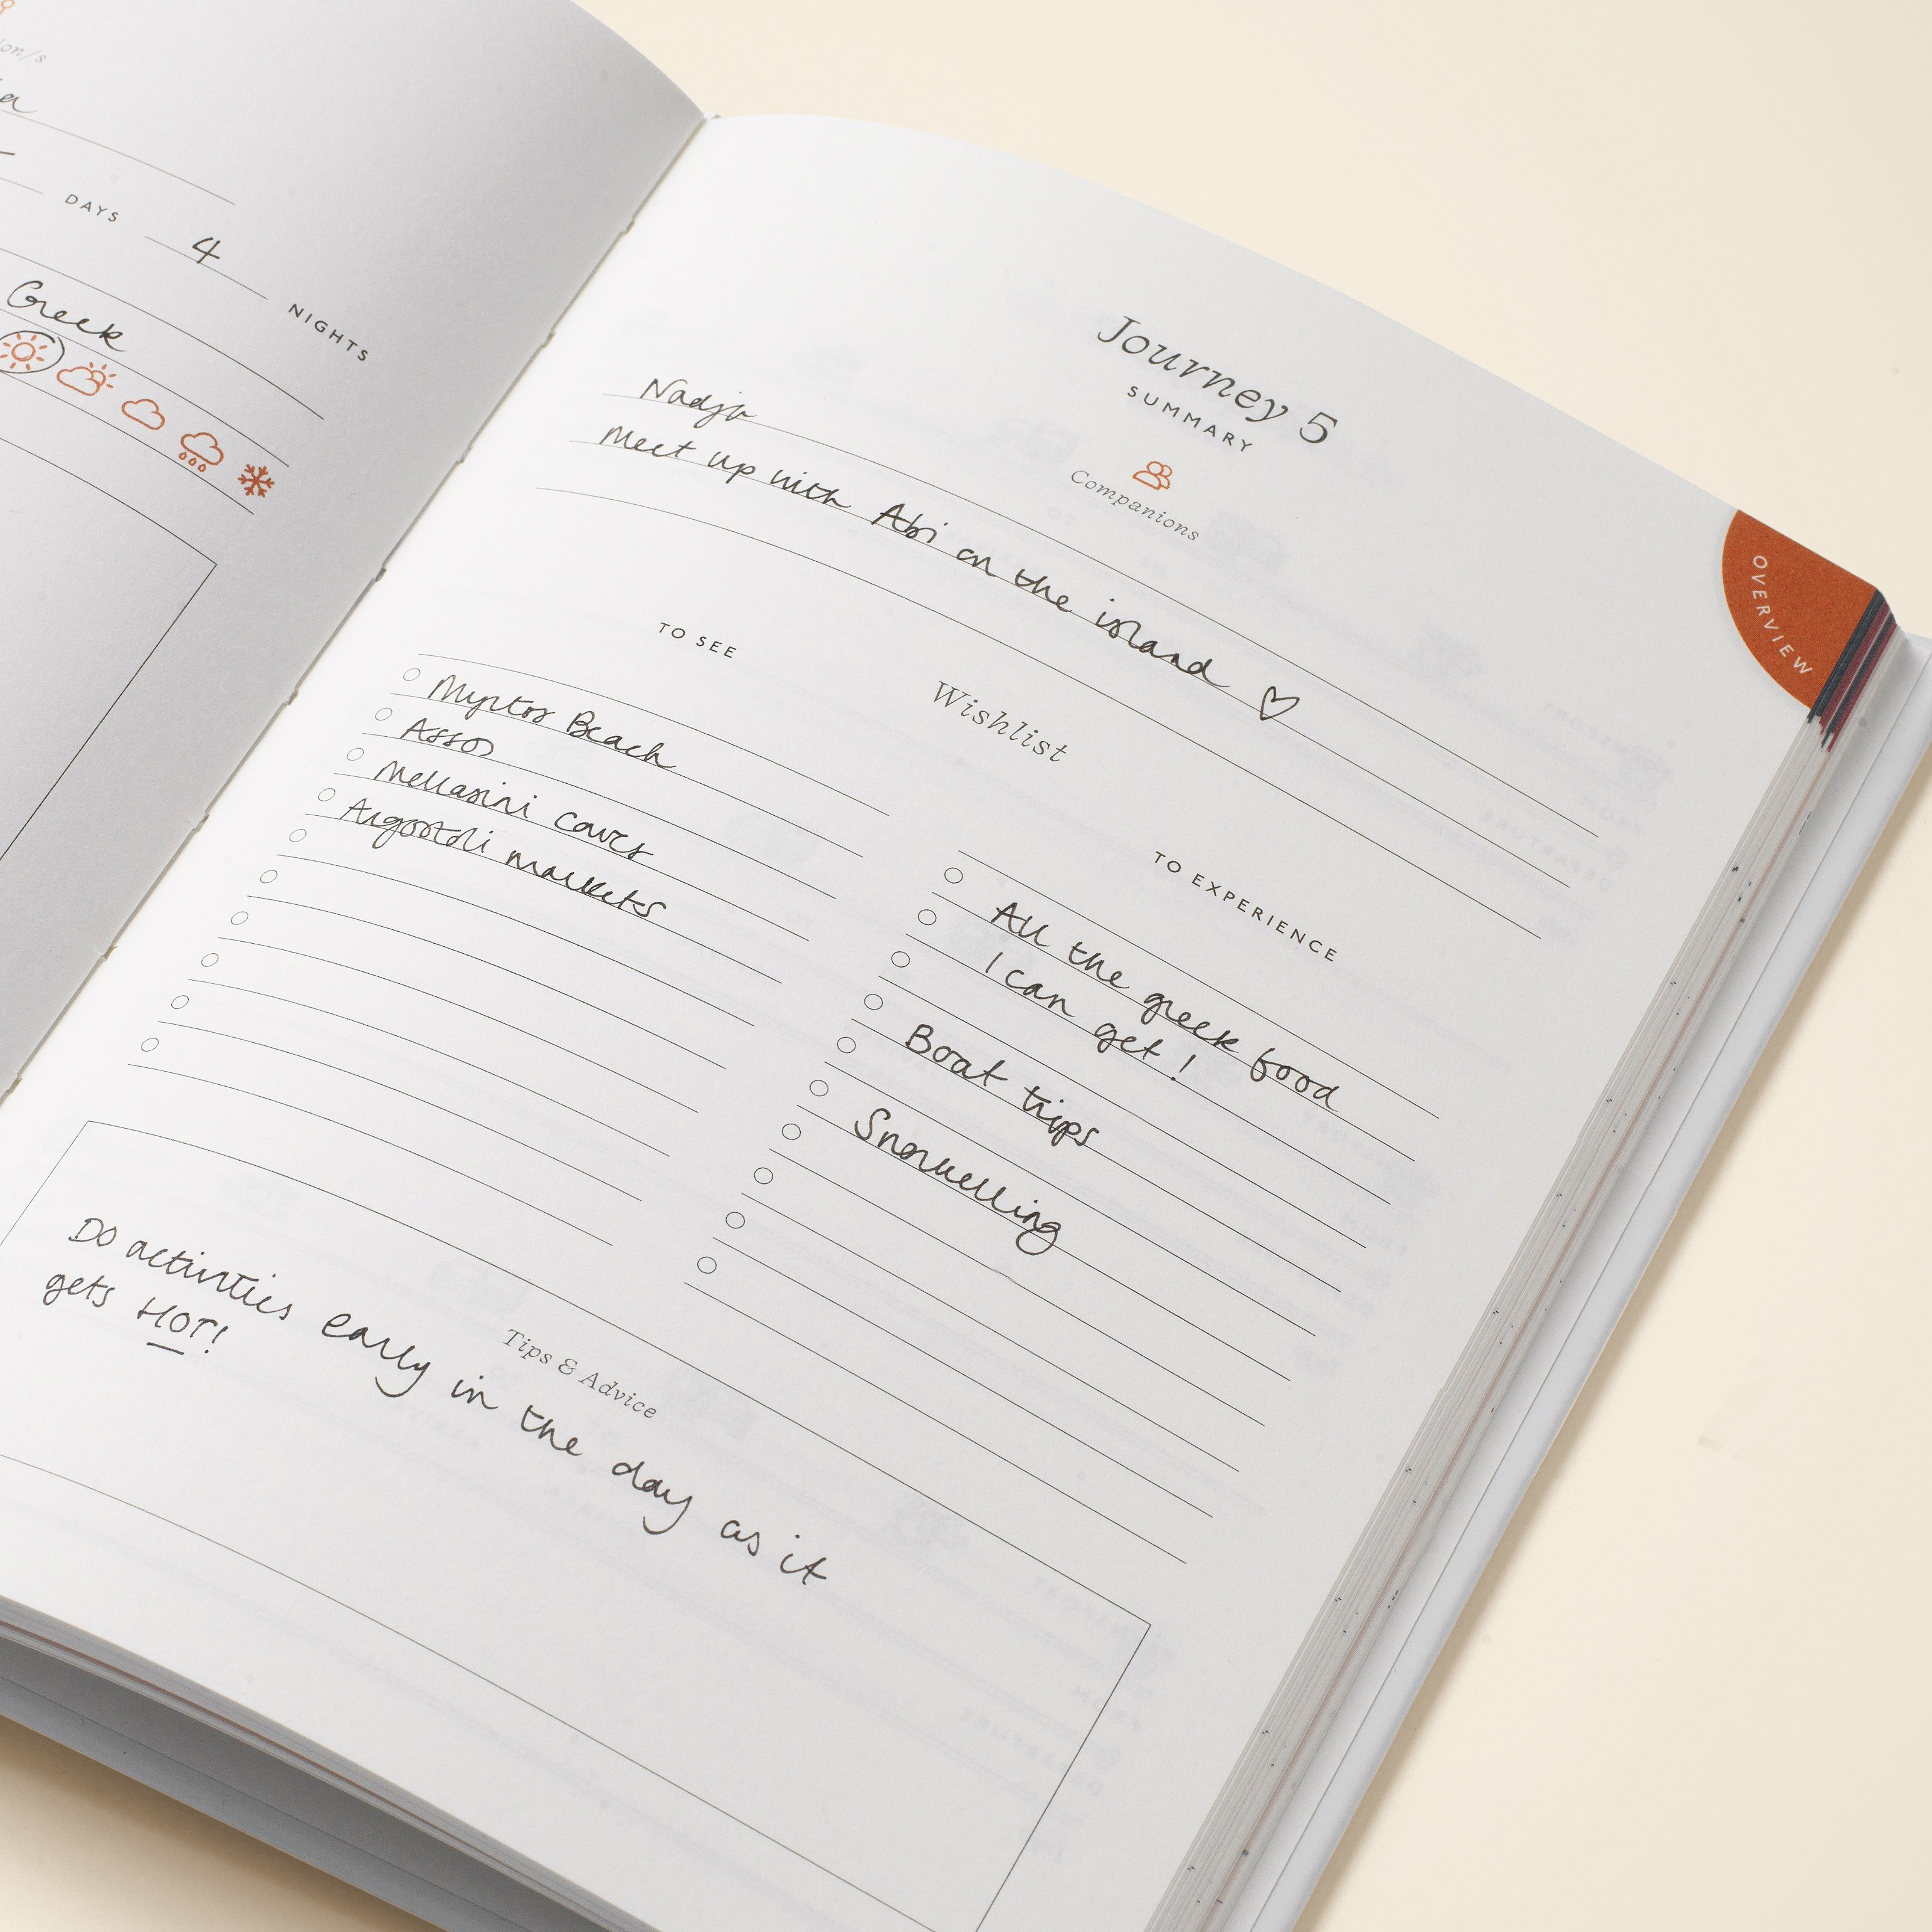 ion/s
DAYS
4
NIGHTS
Greek
Journey 5
SUMMARY
Companions
Nadja
Meet up with Abi on the island ♡
Wishlist
TO SEE
Myrtos Beach
Assos
Mellasini caves
Argostoli markets
TO EXPERIENCE
All the greek food
I can get!
Boat trips
Snorkelling
Tips & Advice
Do activities early in the day as it
gets HOT!
OVERVIEW